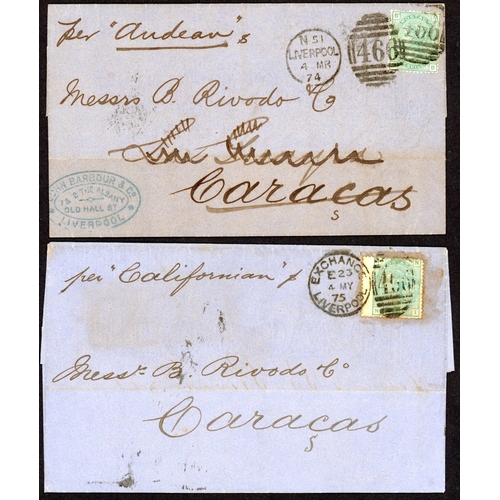 per "Andean" s
N 51
LIVERPOOL
4 MR
74
466
466
Messrs B. Rivodo Co
La Guayra
Caracas
s
JOHN BARBOUR & Co
7 & 8 THE ALBANY
OLD HALL ST
LIVERPOOL
per "Californian" s
EXCHANGE
E 23
4 MY
75
LIVERPOOL
466
Messrs B. Rivodo Co
Caracas
s